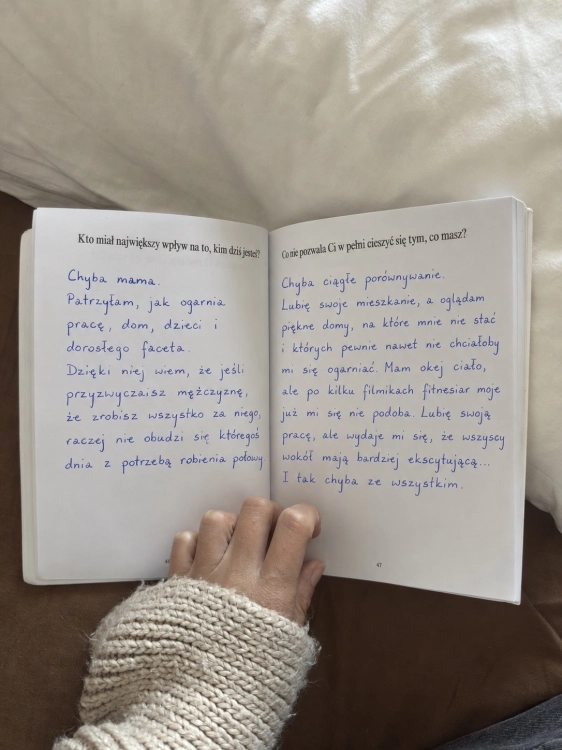 Kto miał największy wpływ na to, kim dziś jesteś?
Chyba mama.
Patrzyłam, jak ogarnia
pracę, dom, dzieci i
dorosłego faceta.
Dzięki niej wiem, że jeśli
przyzwyczaisz mężczyznę,
że zrobisz wszystko za niego,
raczej nie obudzi się któregoś
dnia z potrzebą robienia połowy.
Co nie pozwala Ci w pełni cieszyć się tym, co masz?
Chyba ciągłe porównywanie.
Lubię swoje mieszkanie, a oglądam
piękne domy, na które mnie nie stać
i których pewnie nawet nie chciałoby
mi się ogarniać. Mam okej ciało,
ale po kilku filmikach fitnesiar moje
już mi się nie podoba. Lubię swoją
pracę, ale wydaje mi się, że wszyscy
wokół mają bardziej ekscytującą...
I tak chyba ze wszystkim.
47